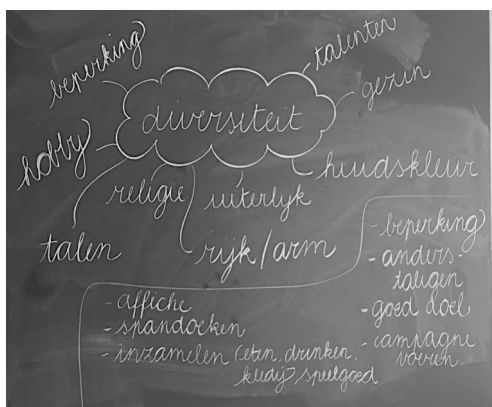 beperking
talenten
gezin
diversiteit
hobby
huidskleur
religie
uiterlijk
talen
rijk/arm
- beperking
- anders-
taligen
- goed doel
- campagne
voeren
- affiche
- spandoeken
- inzamelen (eten, drinken,
kledij, speelgoed